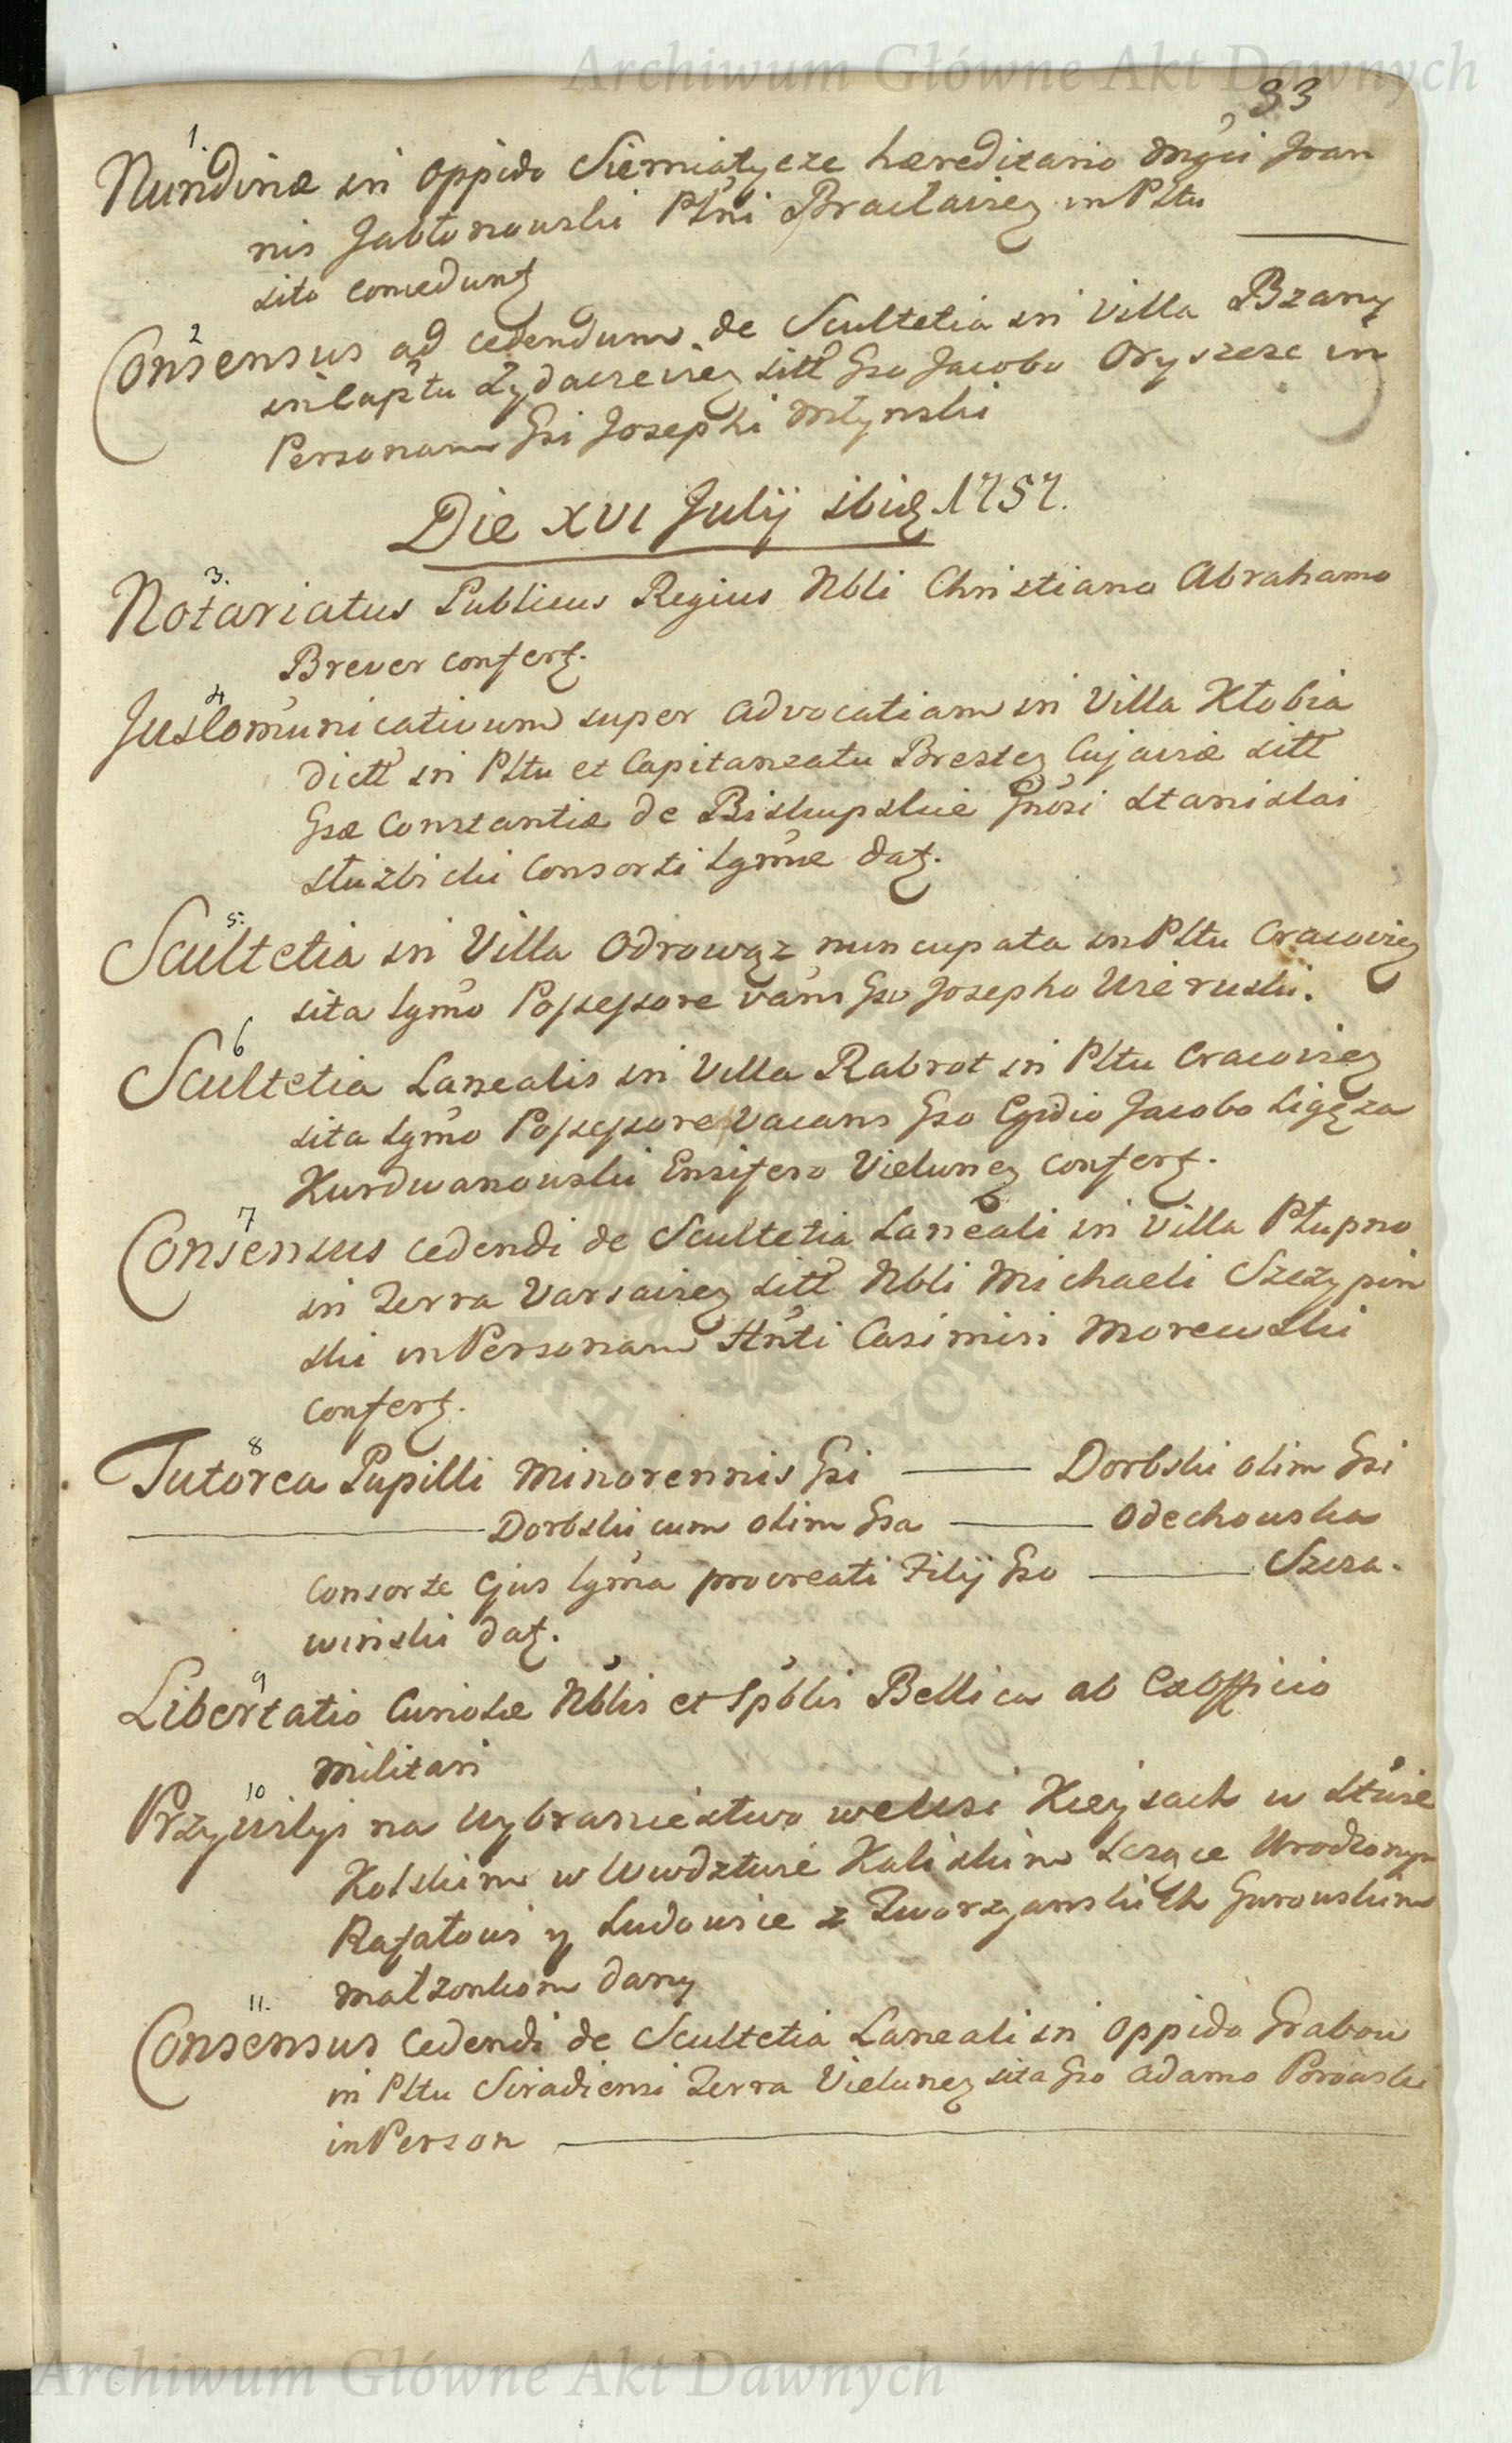 Archiwum Główne Akt Dawnych
33
1.
Nundinæ in Oppido Siemiatycze hæreditario Mgci Joan
nis Jabłonowski Płni Bracłaviey in Płtu ———
sito conceduntꝫ
2
Consensus ad cedendum de Scultetia in Villa Bzany
in Captu Zydacreviey sitt Gso Jacobo Oryszcze in
Personam Gsi Josephi Młynski
Die XVI Julij ibidꝫ 1757.
3.
Notariatus Publicus Regius Nbli Christiano Abrahamo
Brever conferꝫ.
4
Jus Comunicativum super Advocatiam in Villa Kłobia
dictt in Pltu et Capitaneatu Bresteꝫ Cujaviæ sitt
Gsæ Constantiæ de Biskupskie Gnosi Stanislai
Służbicki Consorti lgmæ datꝫ.
5.
Scultetia in Villa Odrowąz nuncupata in Pltu Cracovieꝫ
sita lgmo Possessore vans Gso Josepho Uieruski.
6
Scultetia Lanealis in Villa Rabrot in Pltu Cracovieꝫ
sita lgmo Possessore Vacans Gso Egidio Jacobo Ligęza
Kurdwanowski Ensifero Vieluneꝫ conferꝫ.
7
Consensus cedendi de Scultetia Laneali in Villa Płupno
in Terra Varsavieꝫ sitt Nbli Michaeli Szczypin
ski in Personam Hnti Casimiri Morewski
conferꝫ.
8
Tutorea Pupilli Minorennis Gsi ——— Dorbski olim Gsi
——— Dorbski cum olim Gsa ——— Odechowska
Consorte Ejus lgma procreati Filij Gso ——— Szcza.
winski datꝫ.
9
Libertatio Curiolæ Nblis et Spblis Bellica ab Exofficio
Militari
10
Przywilyi na Wybraniectwo we Wsi Kieysach w Stwie
Kolskim w Wwdztwie Kaliskim Leżące Urodzonym
Rafałowi y Ludowice z Tworzyanskich Gurowskim
Małzonkom dany
11.
Consensus Cedendi de Scultetia Laneali in Oppido Grabow
in Pltu Siradiensi Terra Vieluneꝫ sita Gso Adamo Porowski
in Person ———
Archiwum Główne Akt Dawnych